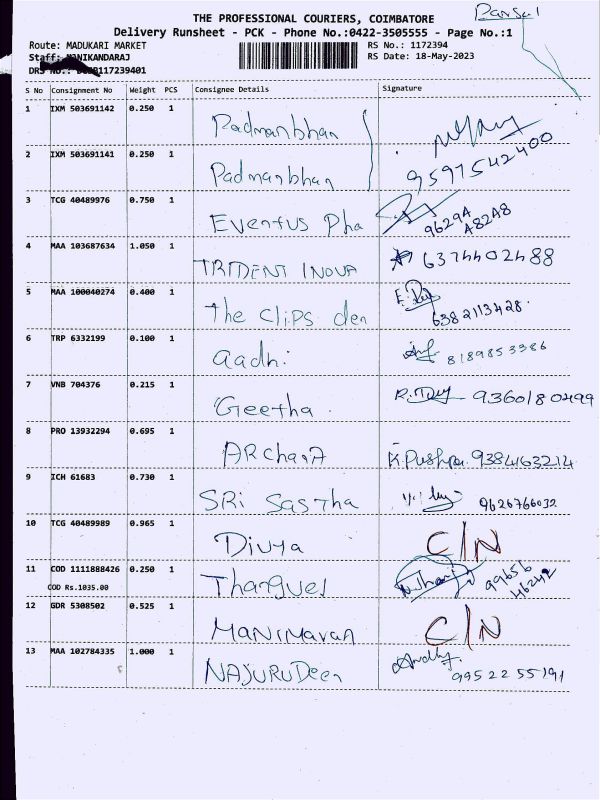 Parsal
THE PROFESSIONAL COURIERS, COIMBATORE
Delivery Runsheet - PCK - Phone No.:0422-3505555 - Page No.:1
Route: MADUKARI MARKET RS No.: 1172394
Staff: MANIKANDARAJ RS Date: 18-May-2023
DRS No.: 117239401
S No Consignment No Weight PCS Consignee Details Signature
1 IXM 503691142 0.250 1 Padmanbhan
2 IXM 503691141 0.250 1 Padmanbhan 9597542400
3 TCG 40489976 0.750 1 Eventus Pha 9629A
A82A8
4 MAA 103687634 1.050 1 TRIDENT INOVA 6374402488
5 MAA 100040274 0.400 1 The Clips den 6382113428
6 TRP 6332199 0.100 1 aadhi 8189853386
7 VNB 704376 0.215 1 Geetha. 9360180499
8 PRO 13932294 0.695 1 ARchanA K.Pushpa. 9384163214
9 ICH 61683 0.730 1 SRi Sastha 9626766032
10 TCG 40489989 0.965 1 Divya C/N
11 COD 1111888426 0.250 1 Thangvel 99656
COD Rs.1035.00 46242
12 GDR 5308502 0.525 1 MANIMaran C/N
13 MAA 102784335 1.000 1 NAJURUDeen 99522 55191